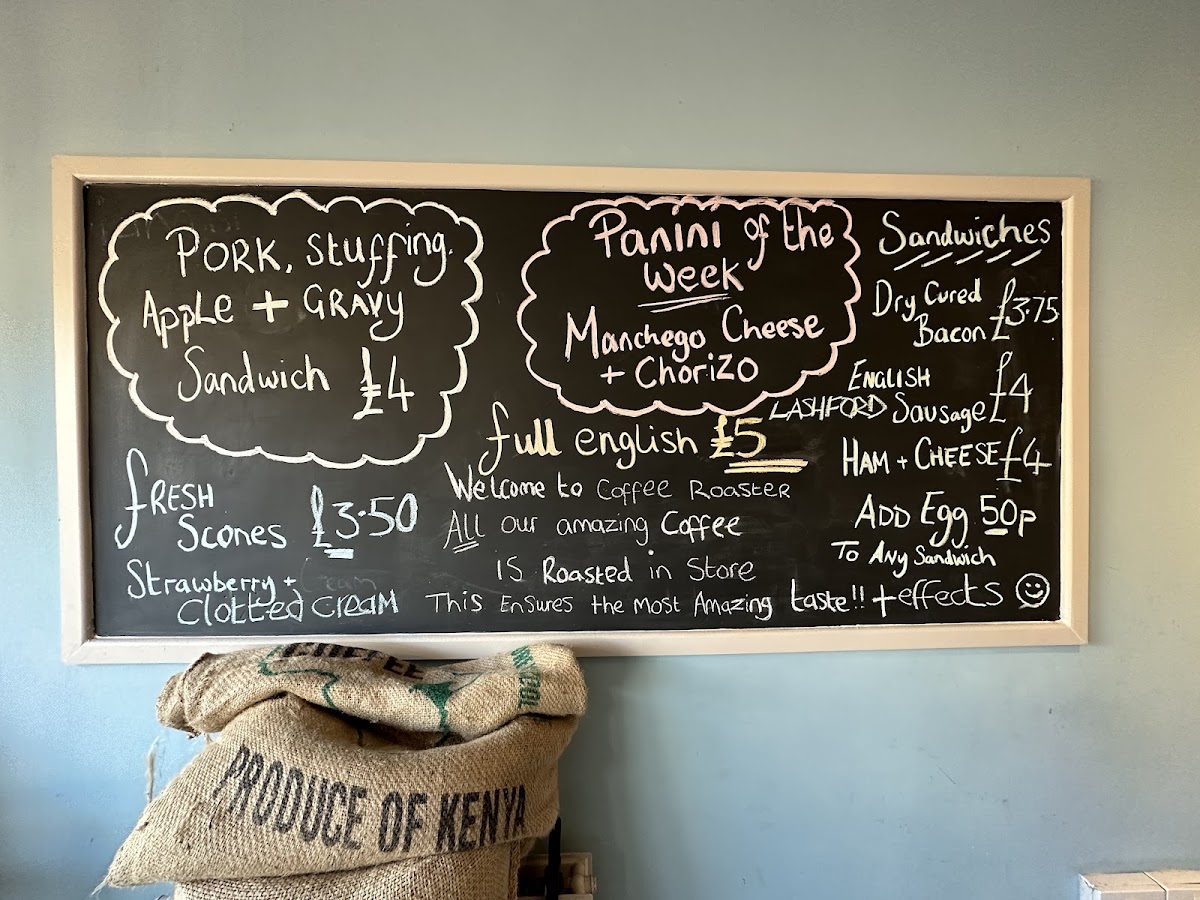 PORK, Stuffing.
Apple + GRAVY
Sandwich £4
fRESH
Scones £3.50
Strawberry +
Clotted cream
Panini of the
Week
Manchego Cheese
+ Chorizo
full english £5
Welcome to Coffee Roaster
All our amazing Coffee
is Roasted in Store
This Ensures the Most Amazing taste!! + effects
Sandwiches
Dry Cured
Bacon £3.75
ENGLISH
LASHFORD Sausage £4
HAM + CHEESE £4
ADD Egg 50p
To Any Sandwich
COFFEE
PRODUCE OF KENYA